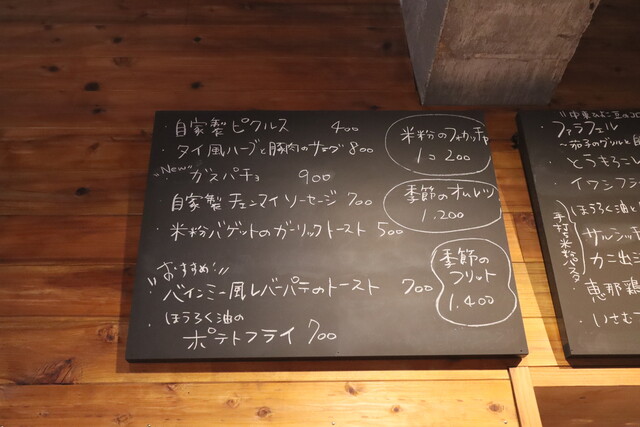 ・自家製ピクルス 400
・タイ風ハーブと豚肉のサラダ 800
"New"
ガスパチョ 900
自家製チェンマイソーセージ 700
・米粉バゲットのガーリックトースト 500
"おすすめ!!"
バインミー風レバーパテのトースト 700
・ほうろく油の
ポテトフライ 700
米粉のフォカッチャ
1コ 200
季節のオムレツ
1.200
季節の
フリット
1.400
ファラフェル
・とうもろこし
・イワシフ
手打ち米粉パスタ
ほうろく油と
サルシッチ
カニ
・恵那鶏
・いさむ